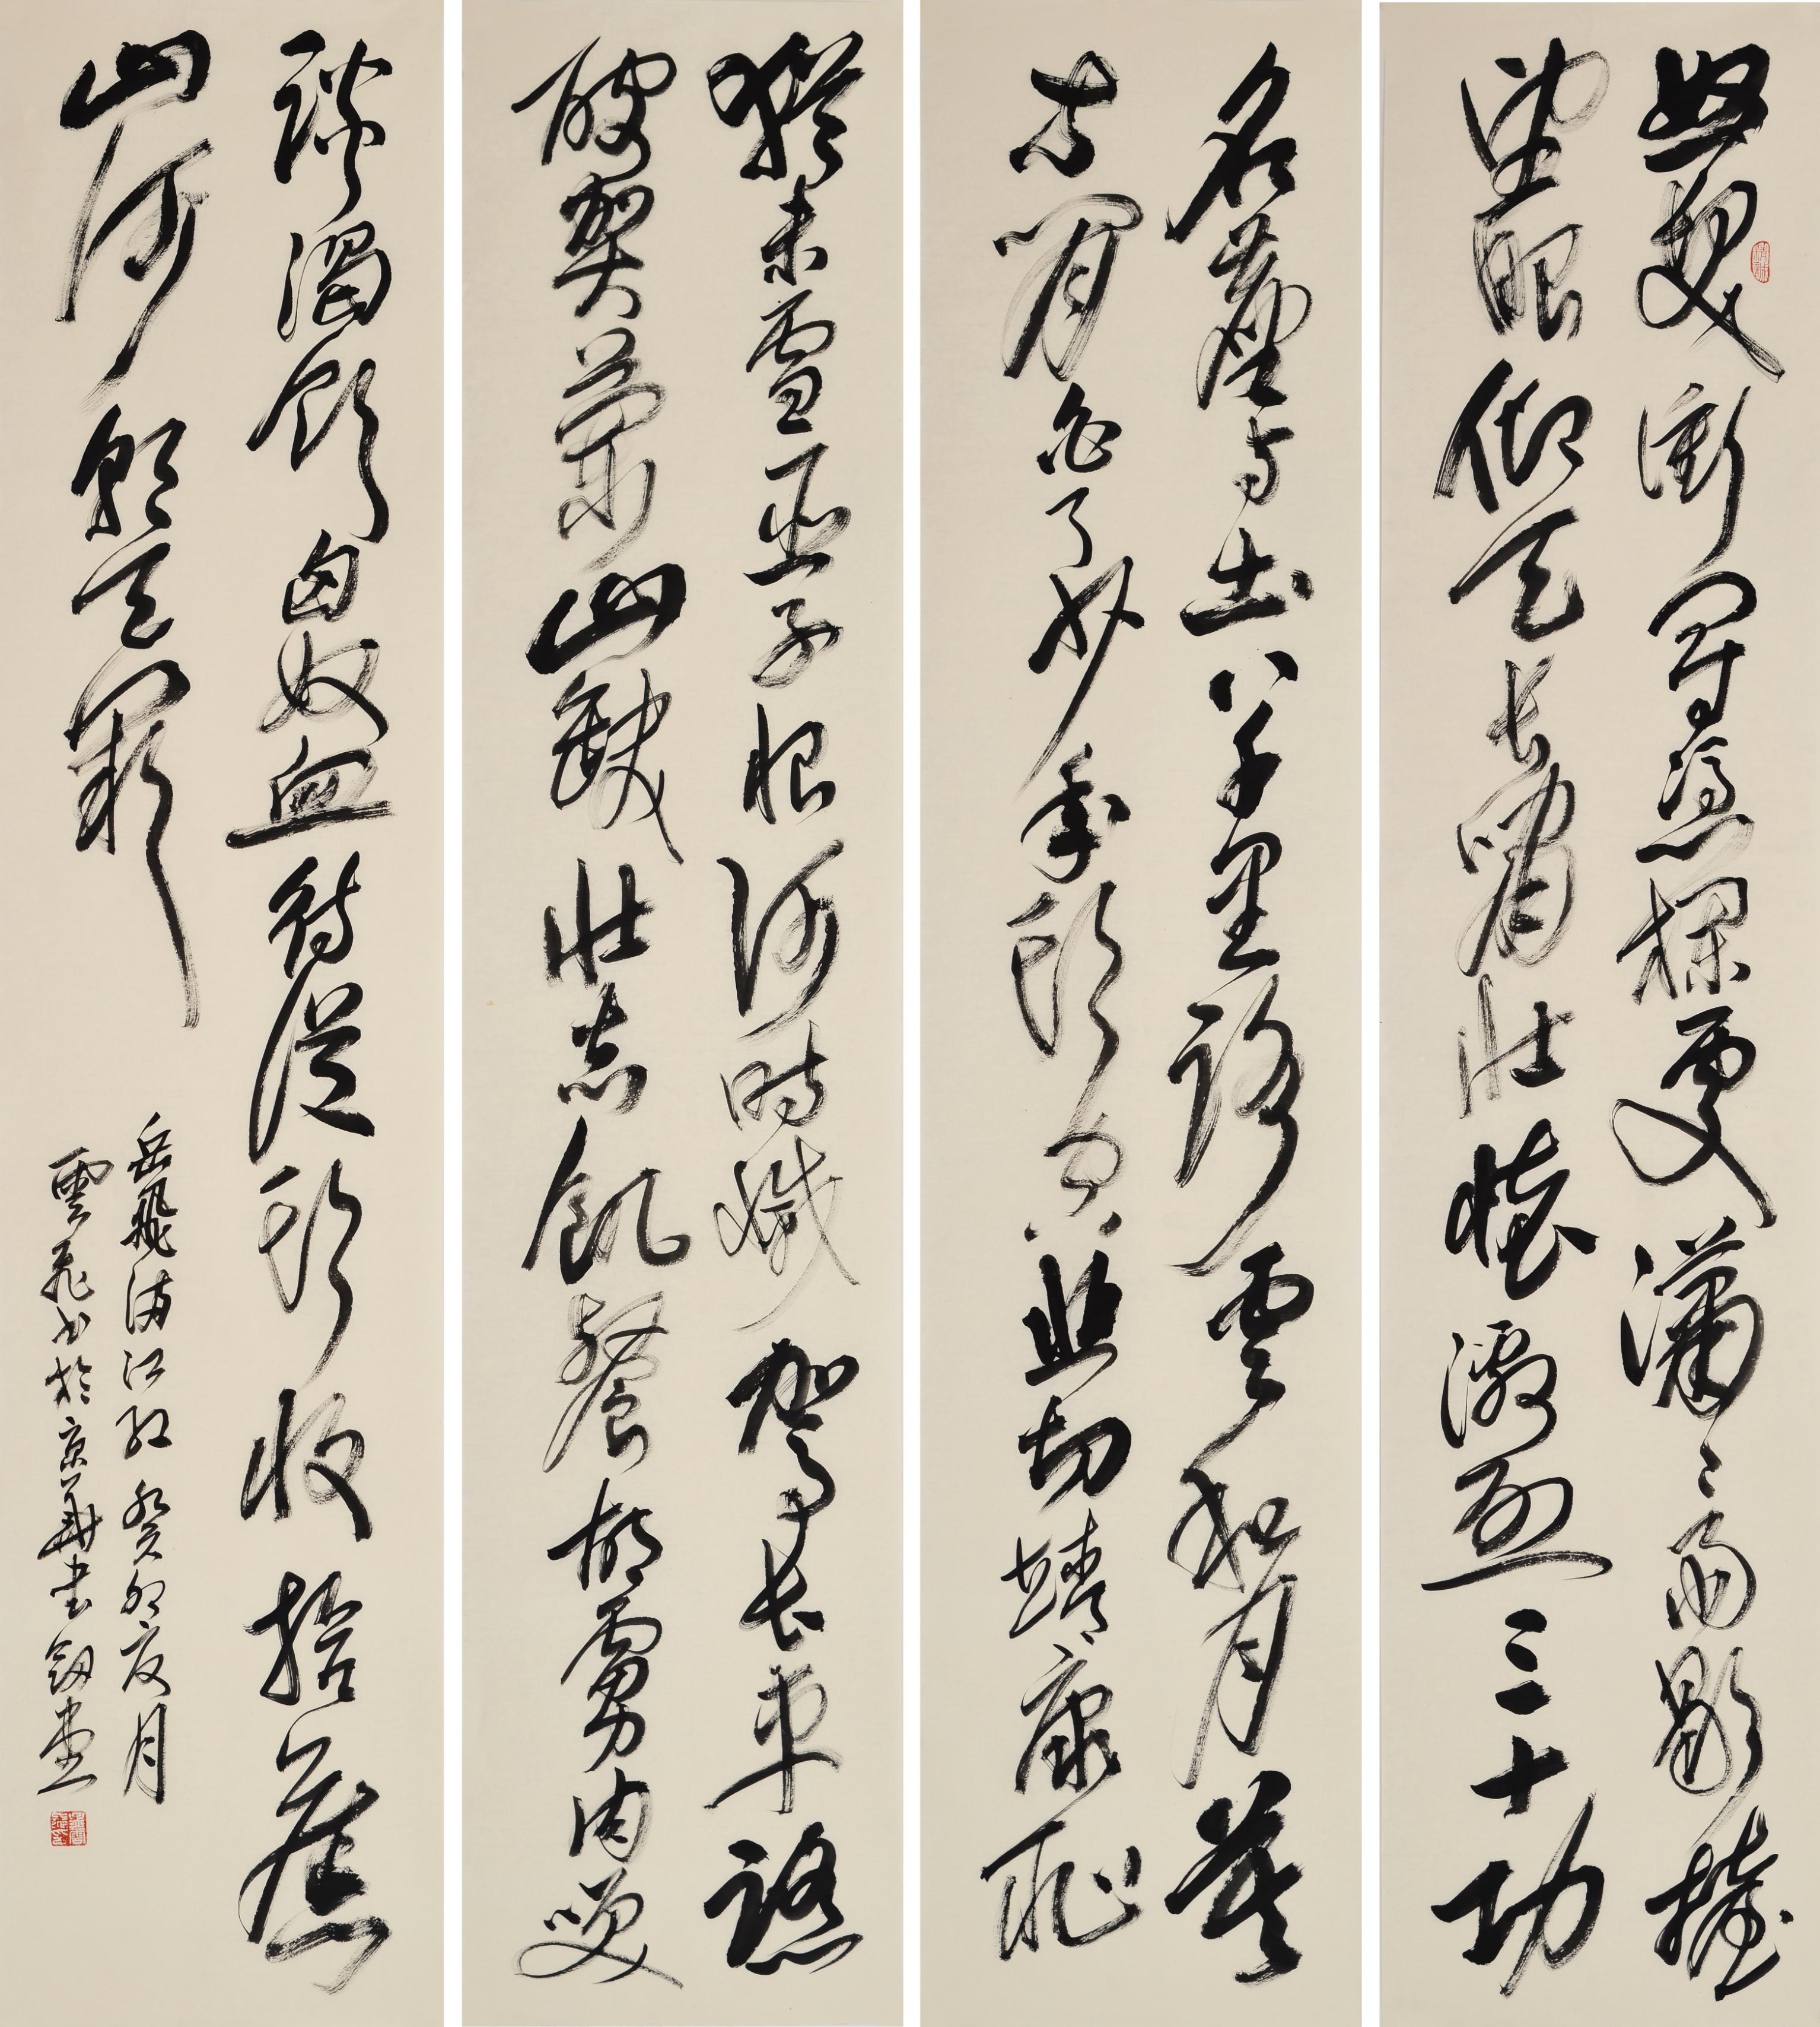 怒髮衝冠憑欄處瀟〻雨歇擡
望眼仰天長嘯壯懷激烈三十功
名塵與土八千里路雲和月莫
等閒白了少年頭空悲切靖康恥
猶未雪臣子恨何時滅駕長車踏
破賀蘭山缺壯志飢餐胡虜肉笑
談渴飲匈奴血待從頭收拾舊
山河朝天闕
岳飛滿江紅癸卯夏月
雲飛書於京華書劍堂